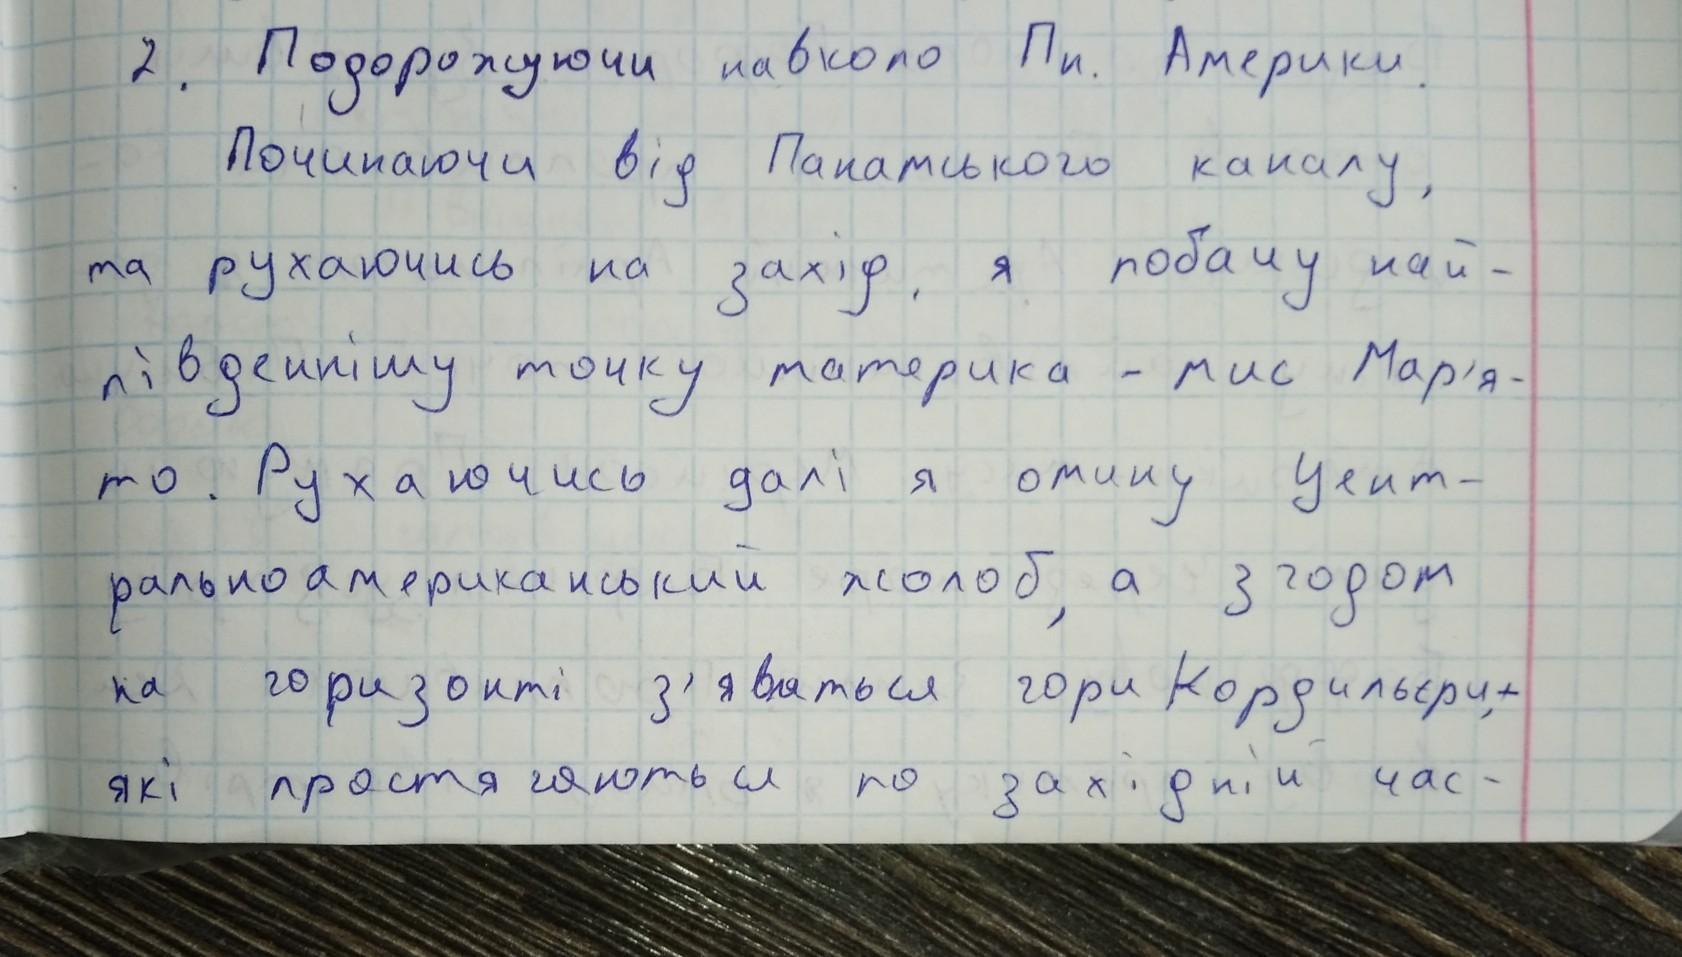 2. Подорожуючи навколо Пн. Америки.
Починаючи від Панамського каналу,
та рухаючись на захід, я побачу най-
південнішу точку материка - мис Мар'я-
то. Рухаючись далі я омину Цент-
ральноамериканський жолоб, а згодом
на горизонті з'явяться гори Кордильєри,
які простягаються по західній час-